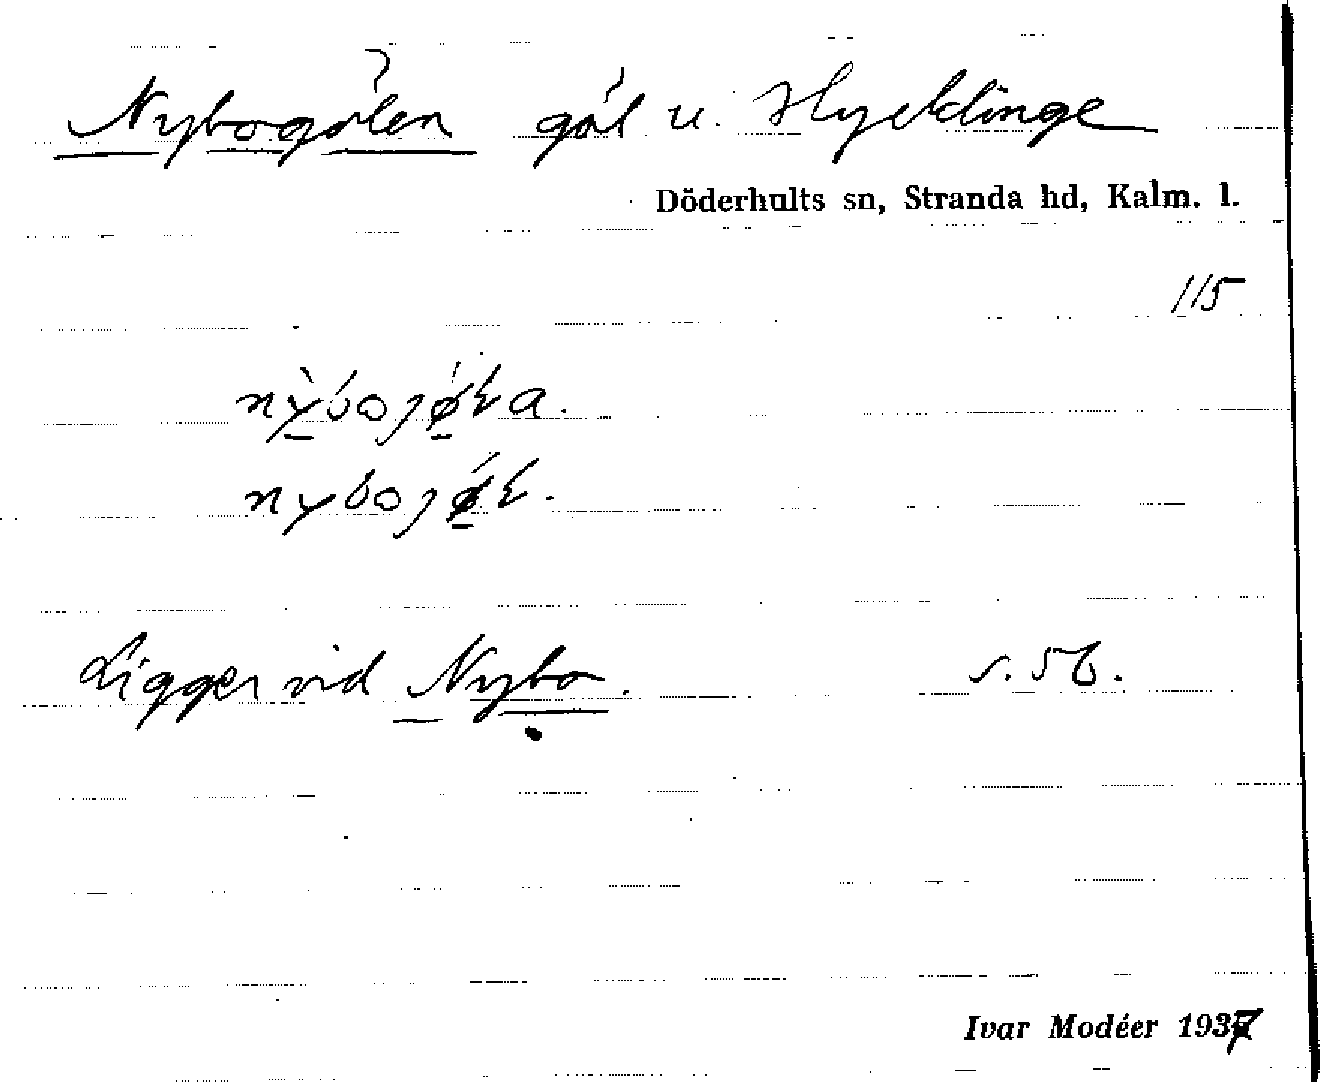 Nybogölen göl u. Hycklinge
Döderhults sn, Stranda hd, Kalm. l.
115
Ligger vid Nybo. s. 56.
Ivar Modéer 1937